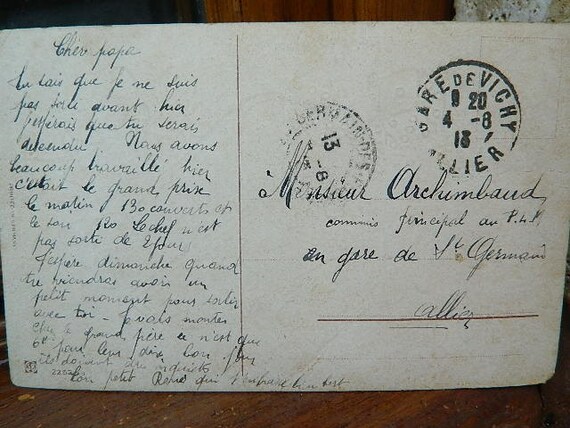 Cher papa
Tu sais que je ne suis
pas sorti avant hier
j'espérais que tu serais
descendu. Nous avons
beaucoup travaillé hier
c'était le grand prix
le matin 130 couverts et
le soir 120 Lechel n'est
pas sorti de 2 jours
J'espère dimanche quand
tu viendras avoir un
petit moment pour sortir
avec toi - J'avais montes
le grand père ce n'est que
6f pour leur dire bon jour
inquiets
Ton petit René qui t'embrasse bien fort
GARE DE VICHY
9 20
4 - 8
13
ALLIER
ST GERMAIN-DES-
13
- 8
à Monsieur Archimbaud
commis principal au P.L.M
en gare de St Germain
allier